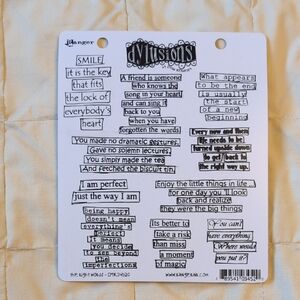 Ranger
Dylusions
SMILE
it is the key
that fits
the lock of
everybody's
heart
A friend is someone
who knows the
song in your heart
and can sing it
back to you
when you have
forgotten the words
What appears
to be the end
is usually
the start
of a new
beginning
You made no dramatic gestures,
Gave no solemn lectures,
You simply made the tea
And fetched the biscuit tin.
Every now and then
life needs to be
turned upside down
to get back to
the right way up.
I am perfect
just the way I am
Being happy
doesn't mean
everything's
perfect
it means
You decide
to see
beyond the
imperfections
Enjoy the little things in life...
for one day you'll look
back and realize
they were the big things
Its better to
take a risk
than miss
a moment
of magic
You can't
have everything
Where would
you put it?